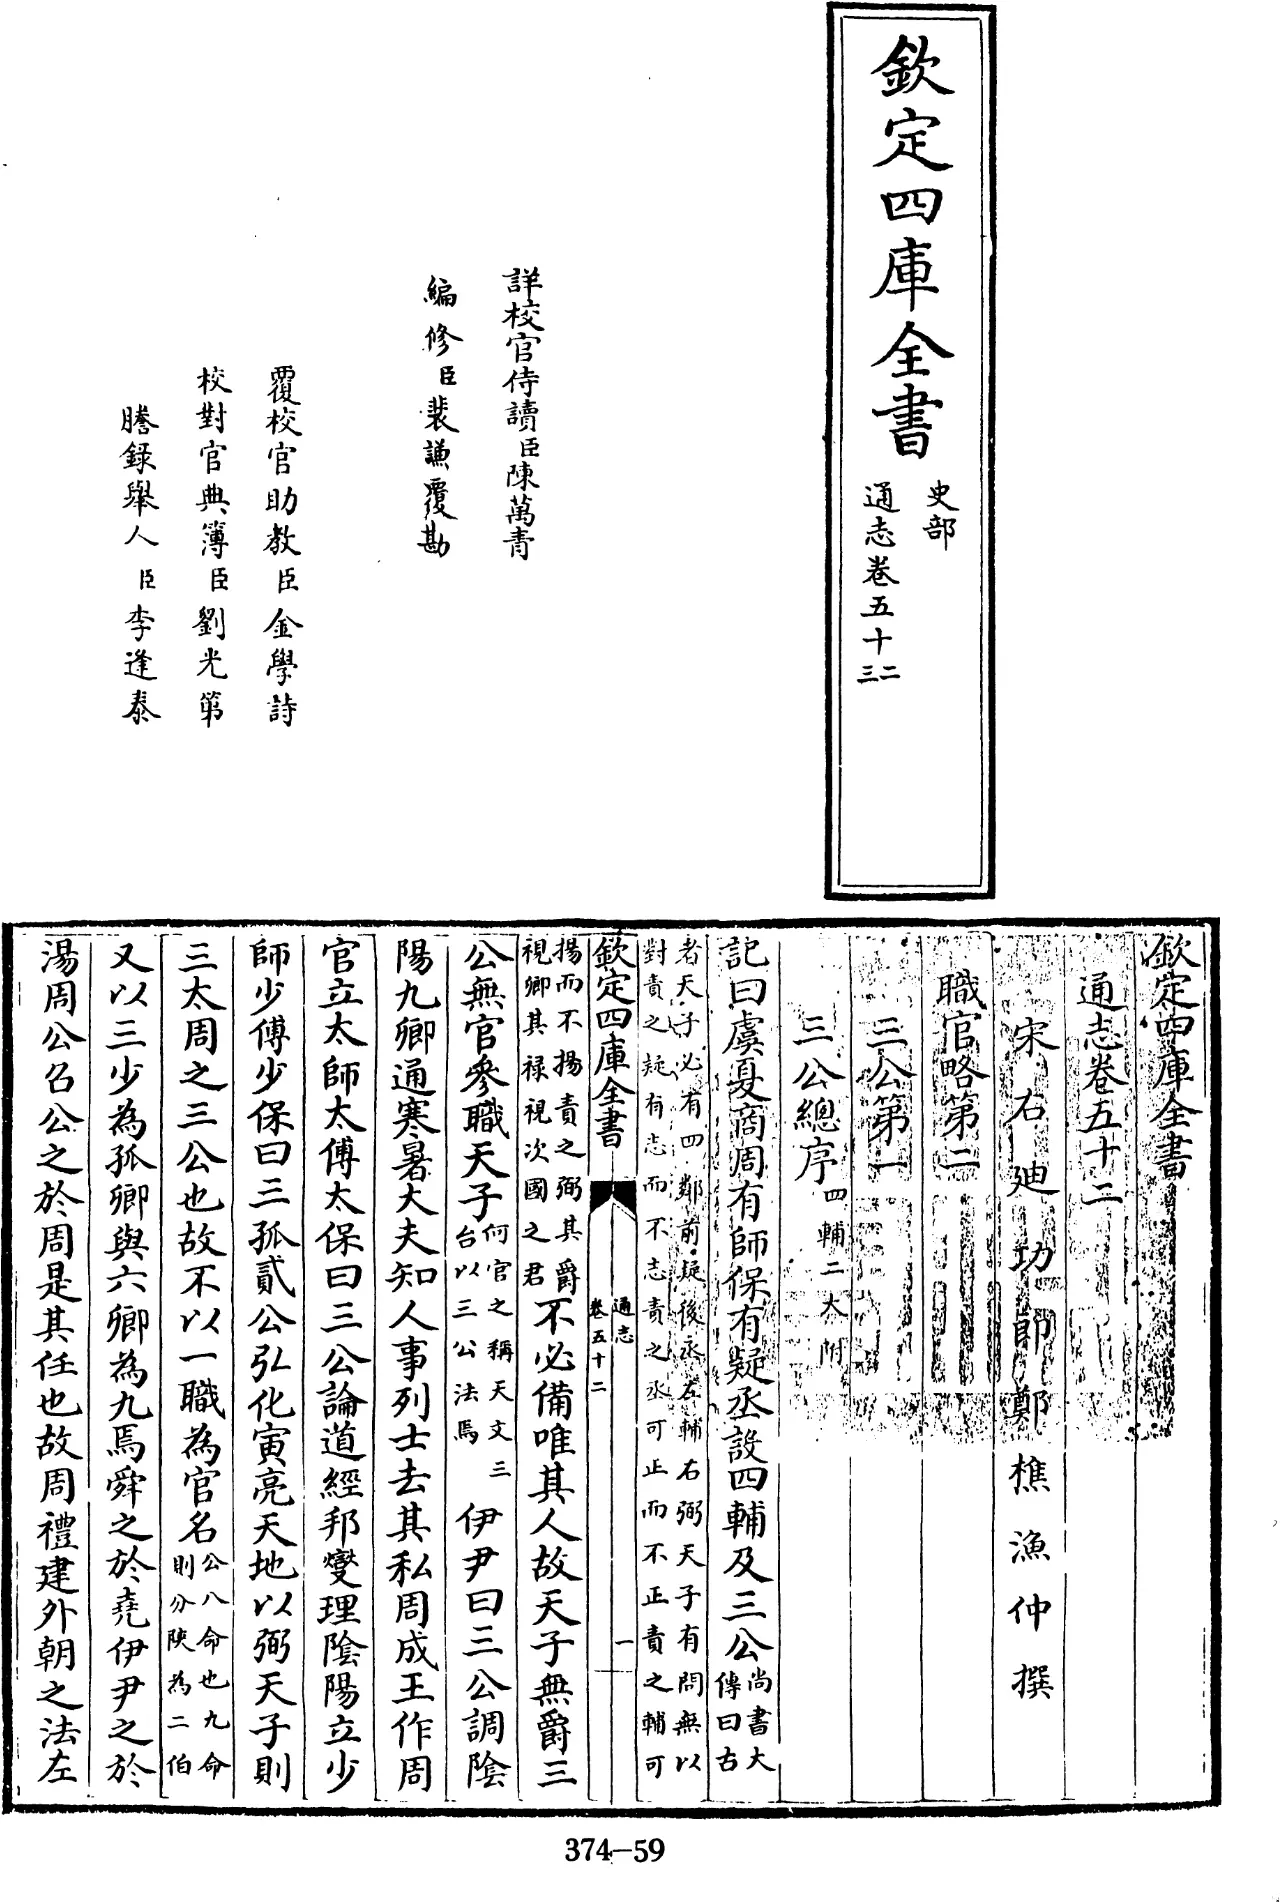 欽定四庫全書
史部
通志卷五十二三
詳校官侍讀臣陳萬青
編修臣裴謙覆勘
覆校官助教臣金學詩
校對官典簿臣劉光第
謄錄舉人臣李逢泰
欽定四庫全書
通志卷五十二
宋右廸功郎鄭樵漁仲撰
職官略第二
三公第一
三公總序四輔二大附
記曰虞夏商周有師保有疑丞設四輔及三公尚書大傳曰古
者天子必有四鄰前疑後丞左輔右弼天子有問無以
對責之疑有志而不志責之丞可正而不正責之輔可
欽定四庫全書
通志
卷五十二
一
揚而不揚責之弼其爵
視卿其禄視次國之君不必備唯其人故天子無爵三
公無官參職天子何官之稱天文三台以三公法焉伊尹曰三公調陰
陽九卿通寒暑大夫知人事列士去其私周成王作周
官立太師太傅太保曰三公論道經邦燮理陰陽立少
師少傅少保曰三孤貳公弘化寅亮天地以弼天子則
三太周之三公也故不以一職為官名公八命也九命則分陝為二伯
又以三少為孤卿與六卿為九焉舜之於堯伊尹之於
湯周公召公之於周是其任也故周禮建外朝之法左
374-59